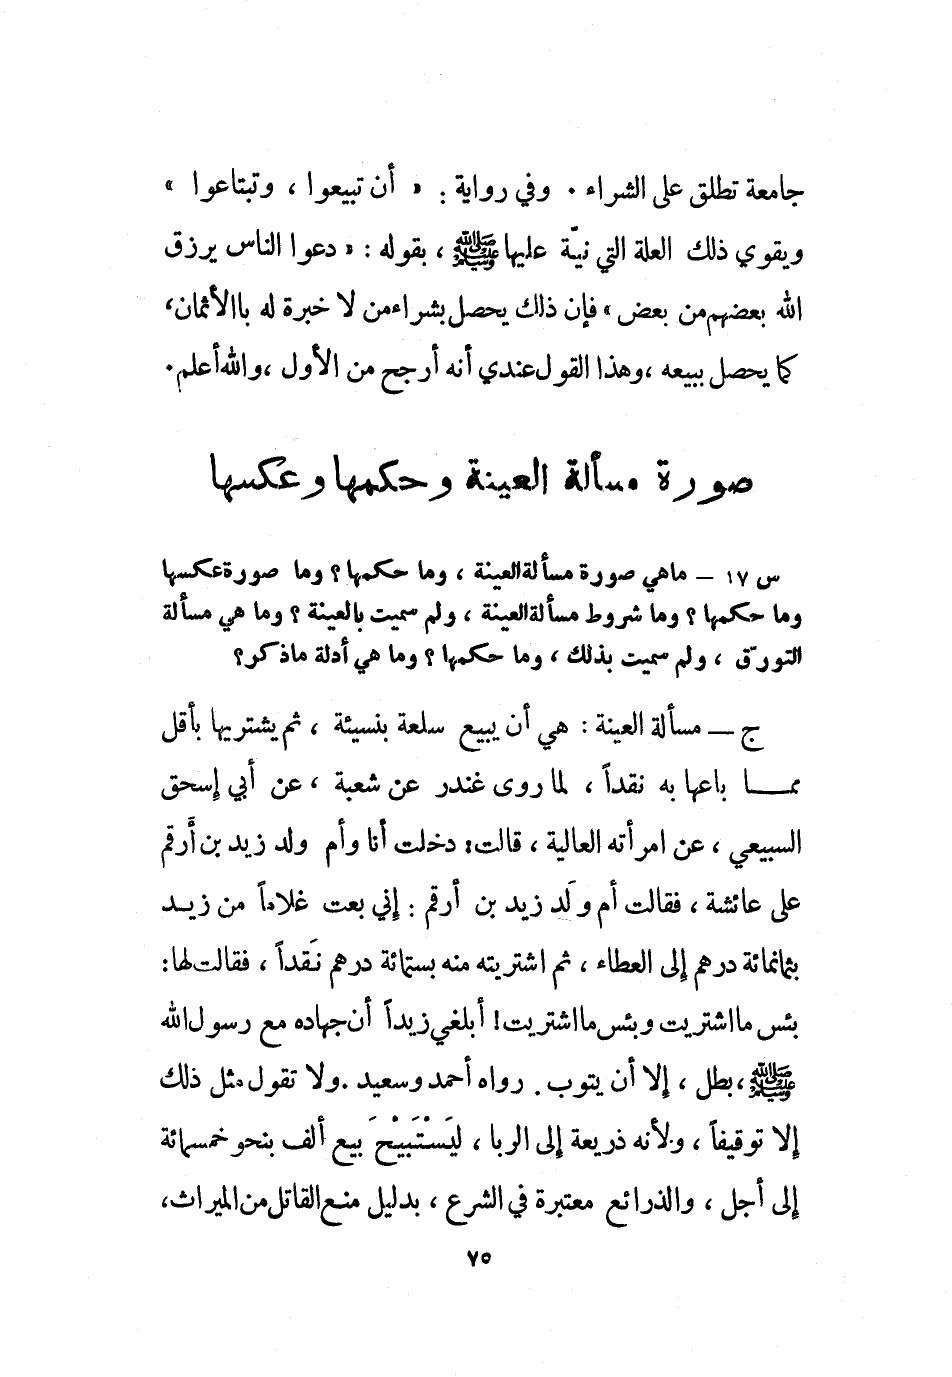 جامعة تطلق على الشراء . وفي رواية : « أن تبيعوا ، وتبتاعوا »
ويقوي ذلك العلة التي نبّة عليها ﷺ ، بقوله : « دعوا الناس يرزق
الله بعضهم من بعض » فإن ذلك يحصل بشراء من لا خبرة له باالأثمان ،
كما يحصل ببيعه ، وهذا القول عندي أنه أرجح من الأول ، والله أعلم .
صورة مسألة العينة وحكمها وعكسها
س ١٧ – ماهي صورة مسألة العينة ، وما حكمها ؟ وما صورة عكسها
وما حكمها ؟ وما شروط مسألة العينة ، ولم سميت بالعينة ؟ وما هي مسألة
التورّق ، ولم سميت بذلك ، وما حكمها ؟ وما هي أدلة ماذكر ؟
ج – مسألة العينة : هي أن يبيع سلعة بنسيئة ، ثم يشتريها بأقل
ممـــا باعها به نقداً ، لما روى غندر عن شعبة ، عن أبي إسحق
السبيعي ، عن امرأته العالية ، قالت : دخلت أنا وأم ولد زيد بن أَرقم
على عائشة ، فقالت أم ولَد زيد بن أرقم : إني بعت غلاماً من زيـد
بثمانمائة درهم إلى العطاء ، ثم اشتريته منه بستمائة درهم نَقداً ، فقالت لها :
بئس ما اشتريت وبئس ما اشتريت ! أبلغي زيداً أن جهاده مع رسول الله
ﷺ ، بطل ، إلا أن يتوب . رواه أحمد وسعيد . ولا تقول مثل ذلك
إلا توقيفاً ، ولأنه ذريعة إلى الربا ، ليَسْتَبِيْحَ بيع ألف بنحو خمسمائة
إلى أجل ، والذرائع معتبرة في الشرع ، بدليل منع القاتل من الميراث ،
٧٥